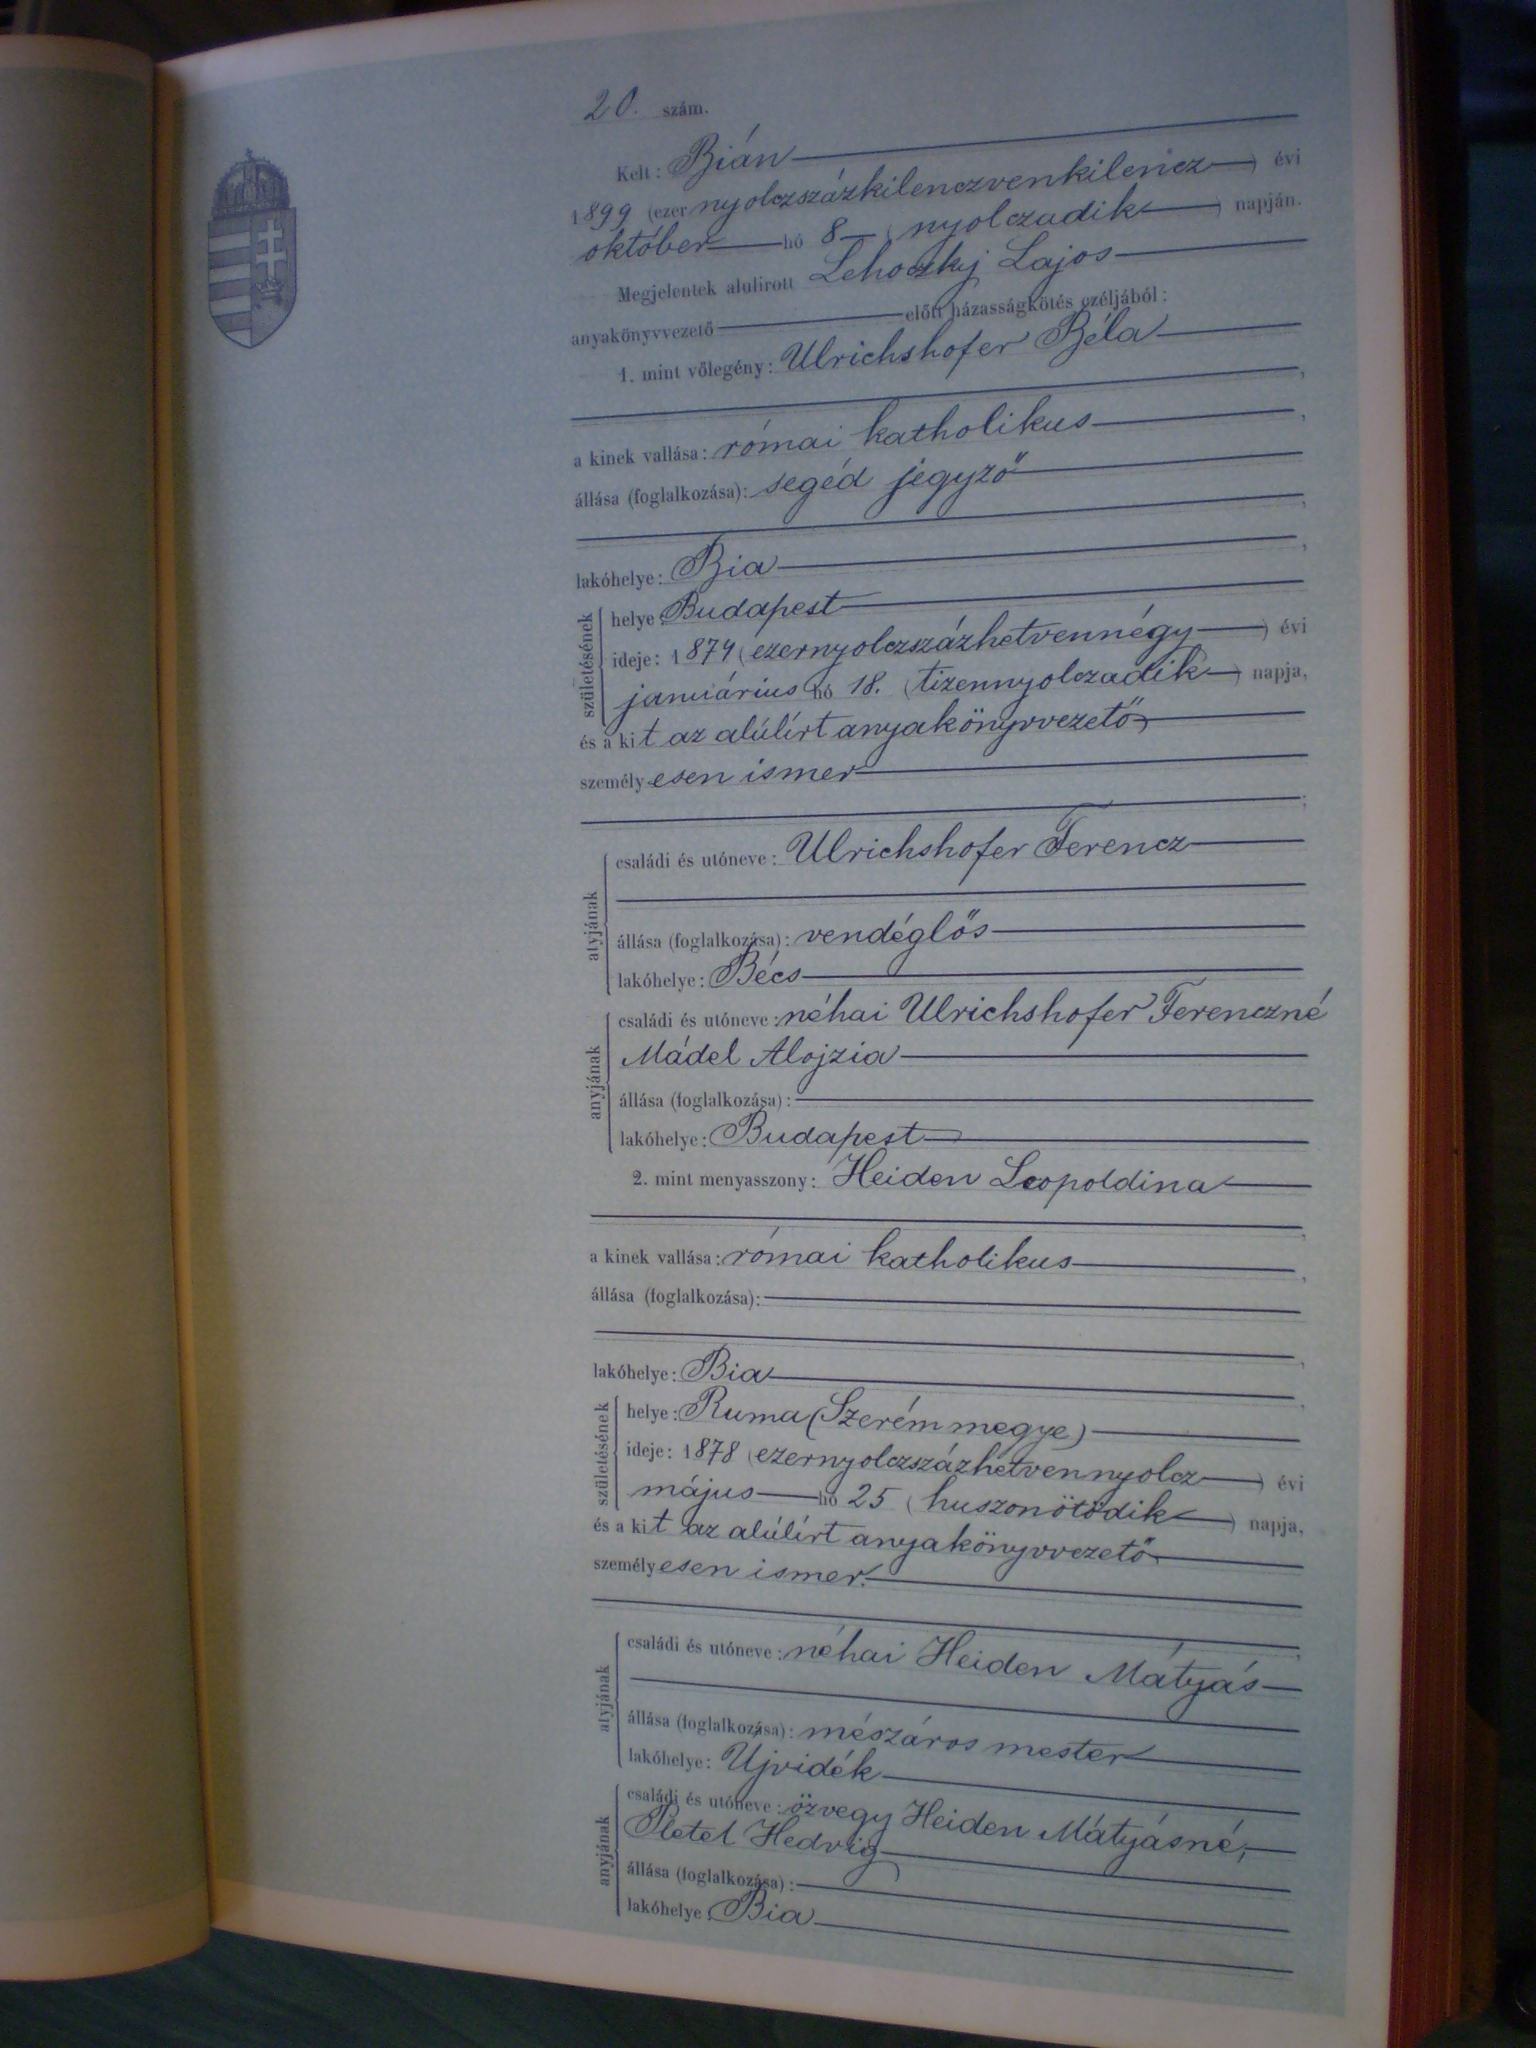 20. szám.
Kelt: Bián
1899 (ezer nyolczszázkilenczvenkilencz) évi
október hó 8 (nyolczadik) napján.
Megjelentek alulirott Lehoczky Lajos
anyakönyvvezető előtt házasságkötés czéljából:
1. mint vőlegény: Ulrichshofer Béla
a kinek vallása: római katholikus,
állása (foglalkozása): segéd jegyző,
lakóhelye: Bia,
születésének
helye: Budapest
ideje: 1874 (ezernyolczszázhetvennégy) évi
januárius hó 18. (tizennyolczadik) napja,
és a kit az alúlírt anyakönyvvezető
személyesen ismer;
atyjának
családi és utóneve: Ulrichshofer Ferencz
állása (foglalkozása): vendéglős
lakóhelye: Bécs
anyjának
családi és utóneve: néhai Ulrichshofer Ferenczné
Mádel Alojzia
állása (foglalkozása):
lakóhelye: Budapest
2. mint menyasszony: Heiden Leopoldina,
a kinek vallása: római katholikus,
állása (foglalkozása):
lakóhelye: Bia,
születésének
helye: Ruma (Szerém megye)
ideje: 1878 (ezernyolczszázhetvennyolcz) évi
május hó 25 (huszonötödik) napja,
és a kit az alúlírt anyakönyvvezető
személyesen ismer.
atyjának
családi és utóneve: néhai Heiden Mátyás
állása (foglalkozása): mészáros mester
lakóhelye: Újvidék
anyjának
családi és utóneve: özvegy Heiden Mátyásné,
Pletel Hedvig
állása (foglalkozása):
lakóhelye: Bia